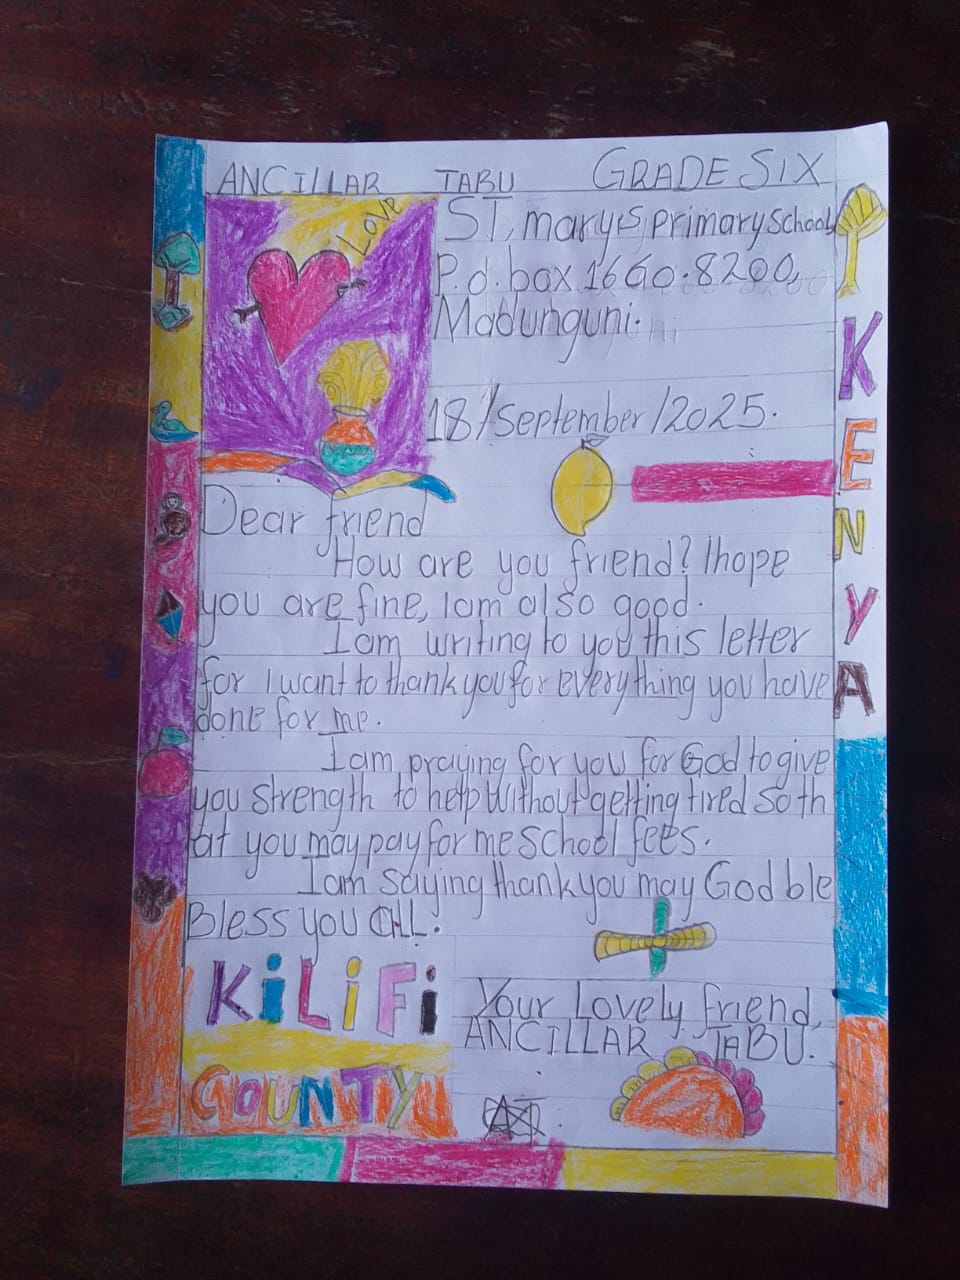 ANCILLAR TABU GRADE SIX
LOVE
ST, mary's primary school
P.o. box 1660.8200,
Madunguni.
18/September/2025.
KENYA
Dear friend
How are you friend? I hope
you are fine, I am also good.
I am writing to you this letter
for I want to thank you for everything you have
done for me.
I am praying for you for God to give
you strength to help without getting tired so th
at you may pay for me school fees.
I am saying thank you may God ble
Bless you all.
KiLiFi
COUNTY
Your Lovely friend,
ANCILLAR TABU.